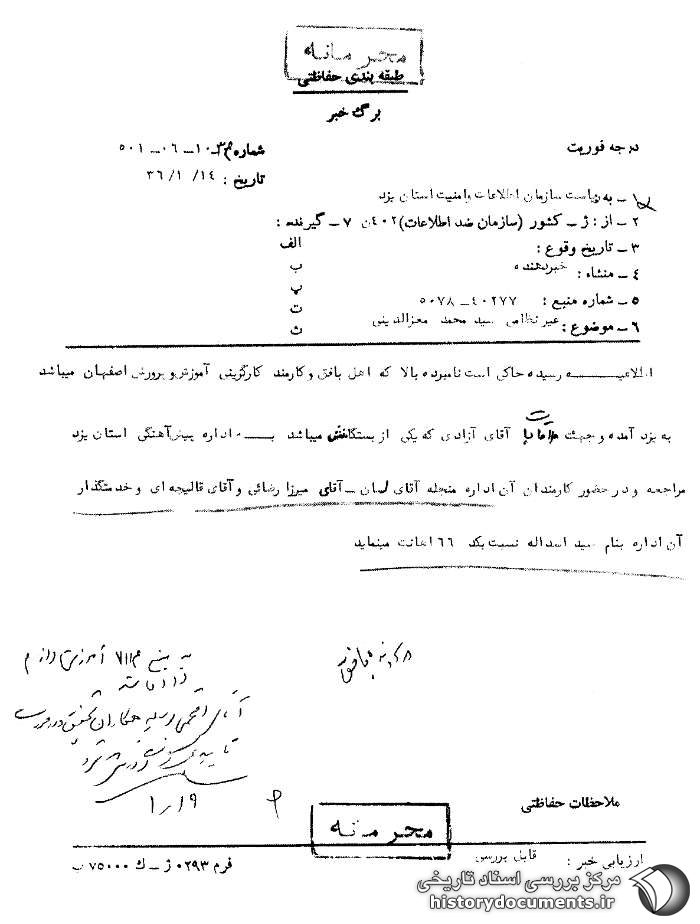 محرمانه
طبقه بندی حفاظتی
برگ خبر
درجه فوریت
شماره ۳۴-۱۰-۰۶-۵۰۱
تاریخ : ۳۶/۱/۱۴
۱ـ به ریاست سازمان اطلاعات وامنیت استان یزد
۲ـ از : ژـ کشور (سازمان ضد اطلاعات) ۴۰۲ن ۷ـ گیرنده :
۳ـ تاریخ وقوع : الف
۴ـ منشاء : خبردهنده ب
پ
۵ـ شماره منبع : ۴۰۲۷۷ـ ۵۰۷۸ ت
۶ـ موضوع : غیر نظامی سید محمد معزالدینی ث
اطلاعیـــه رسیده حاکی است نامبرده بالا که اهل بافق وکارمند کارگزینی آموزش و پرورش اصفهان میباشد
به یزد آمده و جهت ملاقات آقای آزادی که یکی از بستگانش میباشد بـــه اداره پیش‌آهنگی استان یزد
مراجعه و در حضور کارمندان آن اداره منجمله آقای ـ آقای میرزا رضائی و آقای قالیچه ای و خدمتگذار
آن اداره بنام سید اسداله نسبت بکد ۶۶ اهانت مینماید
به منبع ۷۱۱۳ آموزش
آقای همکاران تحقیق در مورد
۱٫۱۹
ملاحظات حفاظتی
محرمانه
ارزیابی خبر : قابل بررسی
فرم ۰۲۹۳ ژـ ك ۷۵۰۰۰ ب
مرکز بررسی اسناد تاریخی
historydocuments.ir